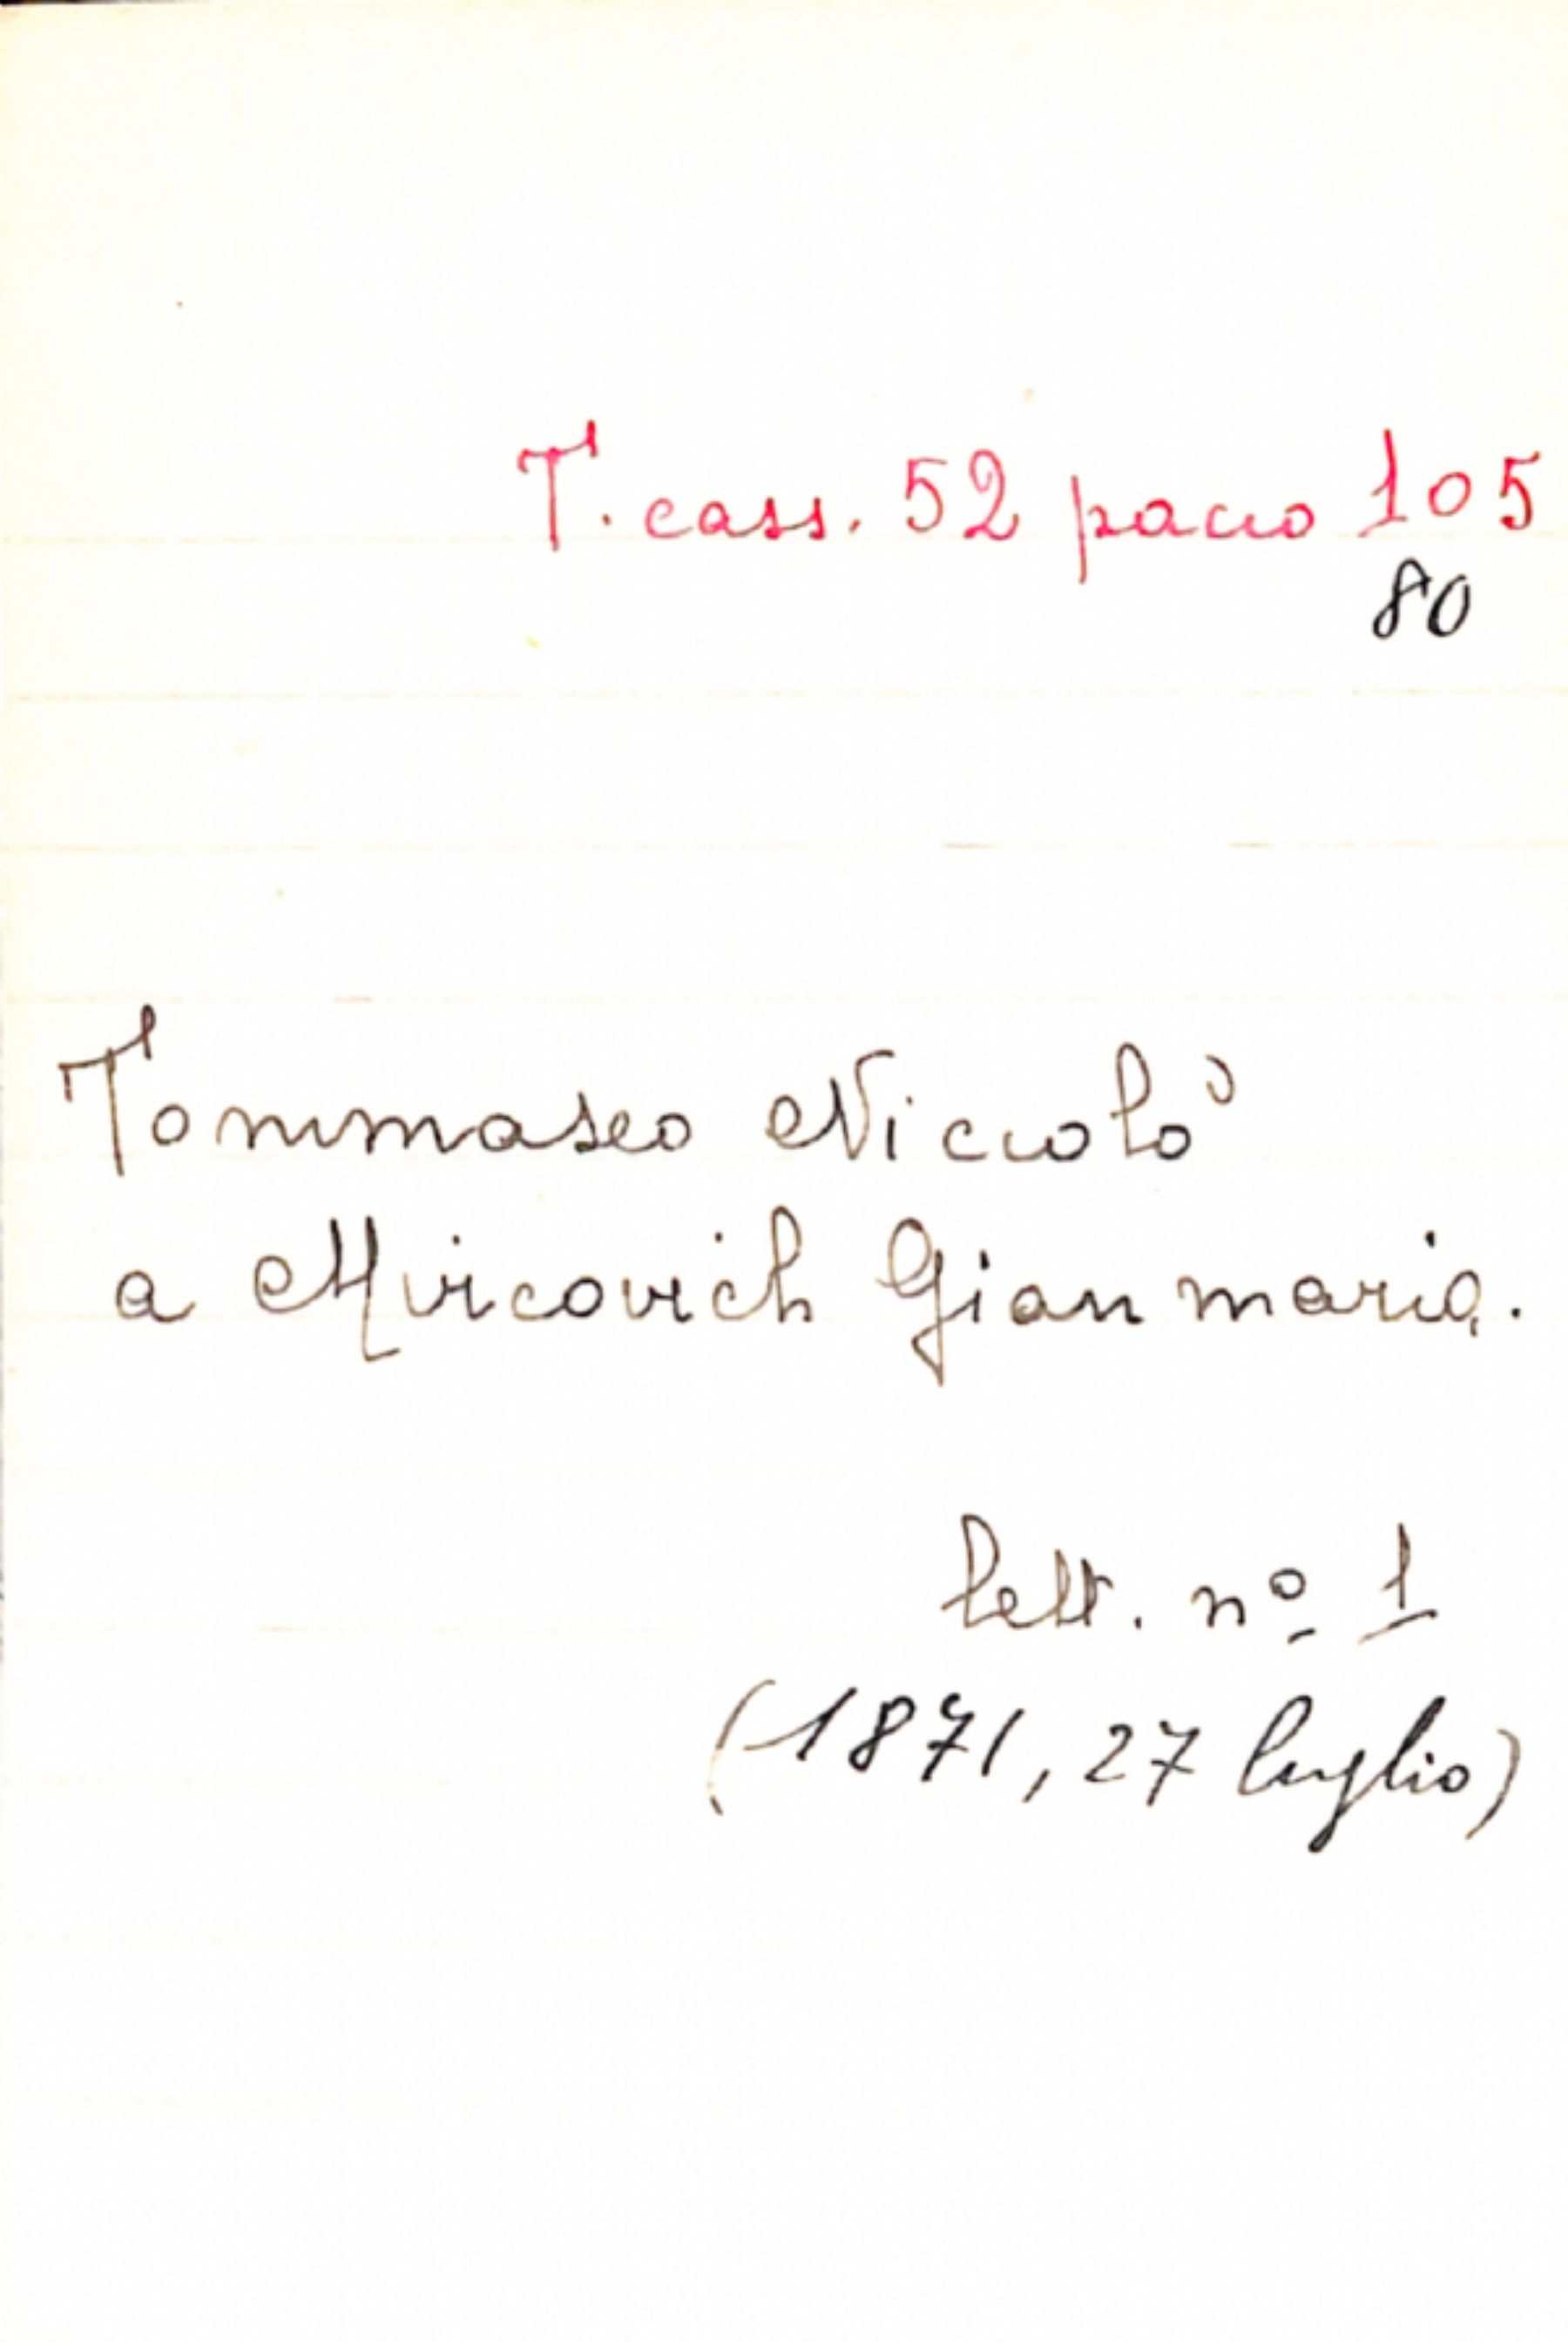 T. cass. 52 pacco 105
80
Tommaseo Niccolò
a Mircovich Gianmaria.
lett. nº 1
(1871, 27 luglio)